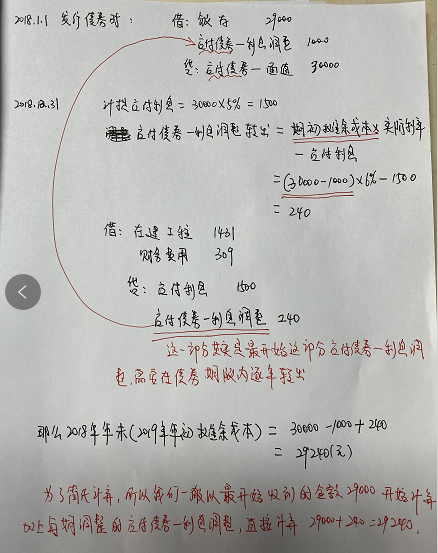 2018.1.1 发行债券时: 借: 银存 29000
应付债券一利息调整 1000
贷: 应付债券一面值 30000
2018.12.31 计提应付利息=30000×5%=1500
应付债券一利息调整转出=期初摊余成本×实际利率
一应付利息
=(30000-1000)×6%-1500
=240
借: 在建工程 1431
财务费用 309
贷: 应付利息 1500
应付债券一利息调整 240
这一部分其实是最开始这部分应付债券一利息调
整,需要在债券期限内逐年转出
那么2018年年末(2019年年初摊余成本)= 30000-1000+240
=29240(元)
为了简化计算,所以我们一般从最开始收到的金额29000开始计算
以上每期调整的应付债券一利息调整,直接计算29000+240=29240.